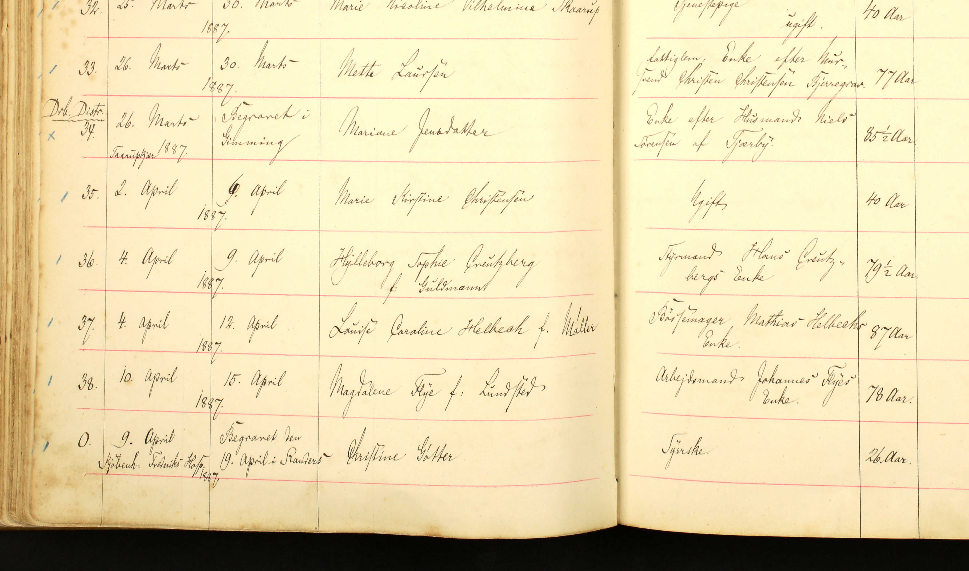 32. 25. Marts 30. Marts Marie Nicoline Vilhelmine Skaarup Tjenestepige 40 Aar
1887. ugift.
33. 26. Marts 30. Marts Mette Laursen fattiglem, Enke efter Mur-
1887. svend Christen Christensen Bjerregrav. 77 Aar
Dob. Distr.
34. 26. Marts Begravet i Mariane Jensdatter Enke efter Husmand Niels
1887. Gimming Sørensen af Tjærby. 85 ½ Aar
35. 2. April 9. April Marie Kirstine Christensen Ugift, 40 Aar
1887.
36. 4. April 9. April Hylleborg Sophie Creutzberg Styrmand Hans Creutz-
1887. f. Guldmann bergs Enke 79 ½ Aar
37. 4. April 12. April Louise Caroline Helbech f. Møller Bøssemager Mathias Helbechs
1887. Enke. 87 Aar
38. 10. April 15. April Magdalene Flye f. Lundsted Arbejdsmand Johannes Flyes
1887. Enke. 78 Aar.
0. 9. April Begravet den Christine Götter Syerske. 26 Aar.
Kjøbenh. Frederiks Hosp. 19. April i Randers
1887.